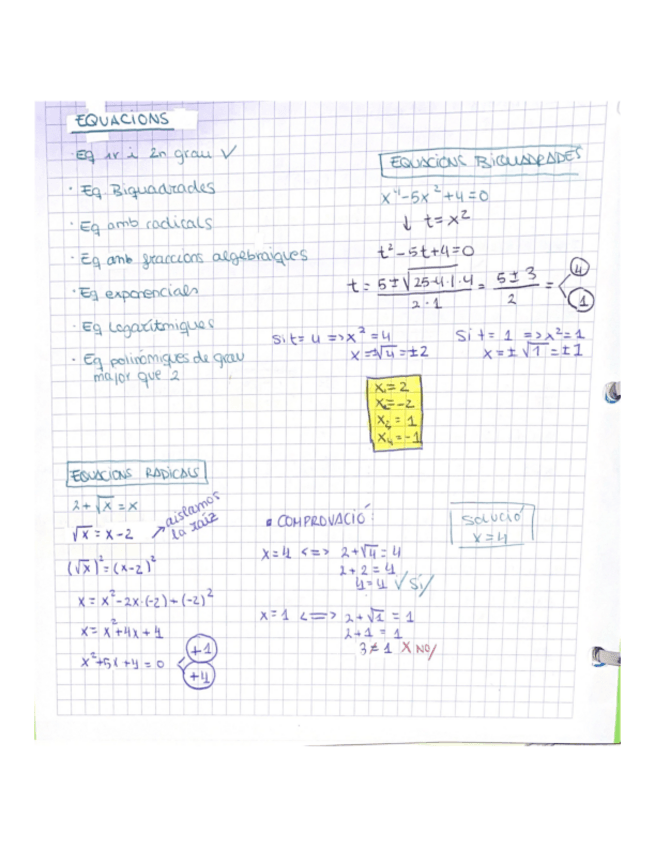 EQUACIONS
· Eq 1r i 2n grau √
· Eq Biquadrades
· Eq amb radicals
· Eq amb fraccions algebraiques
· Eq exponencials
· Eq Logarítmiques
· Eq polinòmiques de grau
major que 2
EQUACIONS BIQUADRADES
x⁴-5x²+4=0
↓ t=x²
t²-5t+4=0
t = (5±√(25-4·1·4))/(2·1) = (5±3)/2 = < 4
1
Si t=4 => x²=4
x=±√4=±2
Si t=1 => x²=1
x=±√1=±1
x₁=2
x₂=-2
x₃=1
x₄=-1
EQUACIONS RADICALS
2+√x=x
√x=x-2 → aislamos
la raíz
(√x)²=(x-2)²
x=x²-2x·(-2)+(-2)²
x=x²+4x+4
x²+5x+4=0 < +1
+4
COMPROVACIÓ:
x=4 <=> 2+√4=4
2+2=4
4=4 √ Sí/
x=1 <=> 2+√1=1
2+1=1
3≠1 X NO/
SOLUCIÓ
x=4